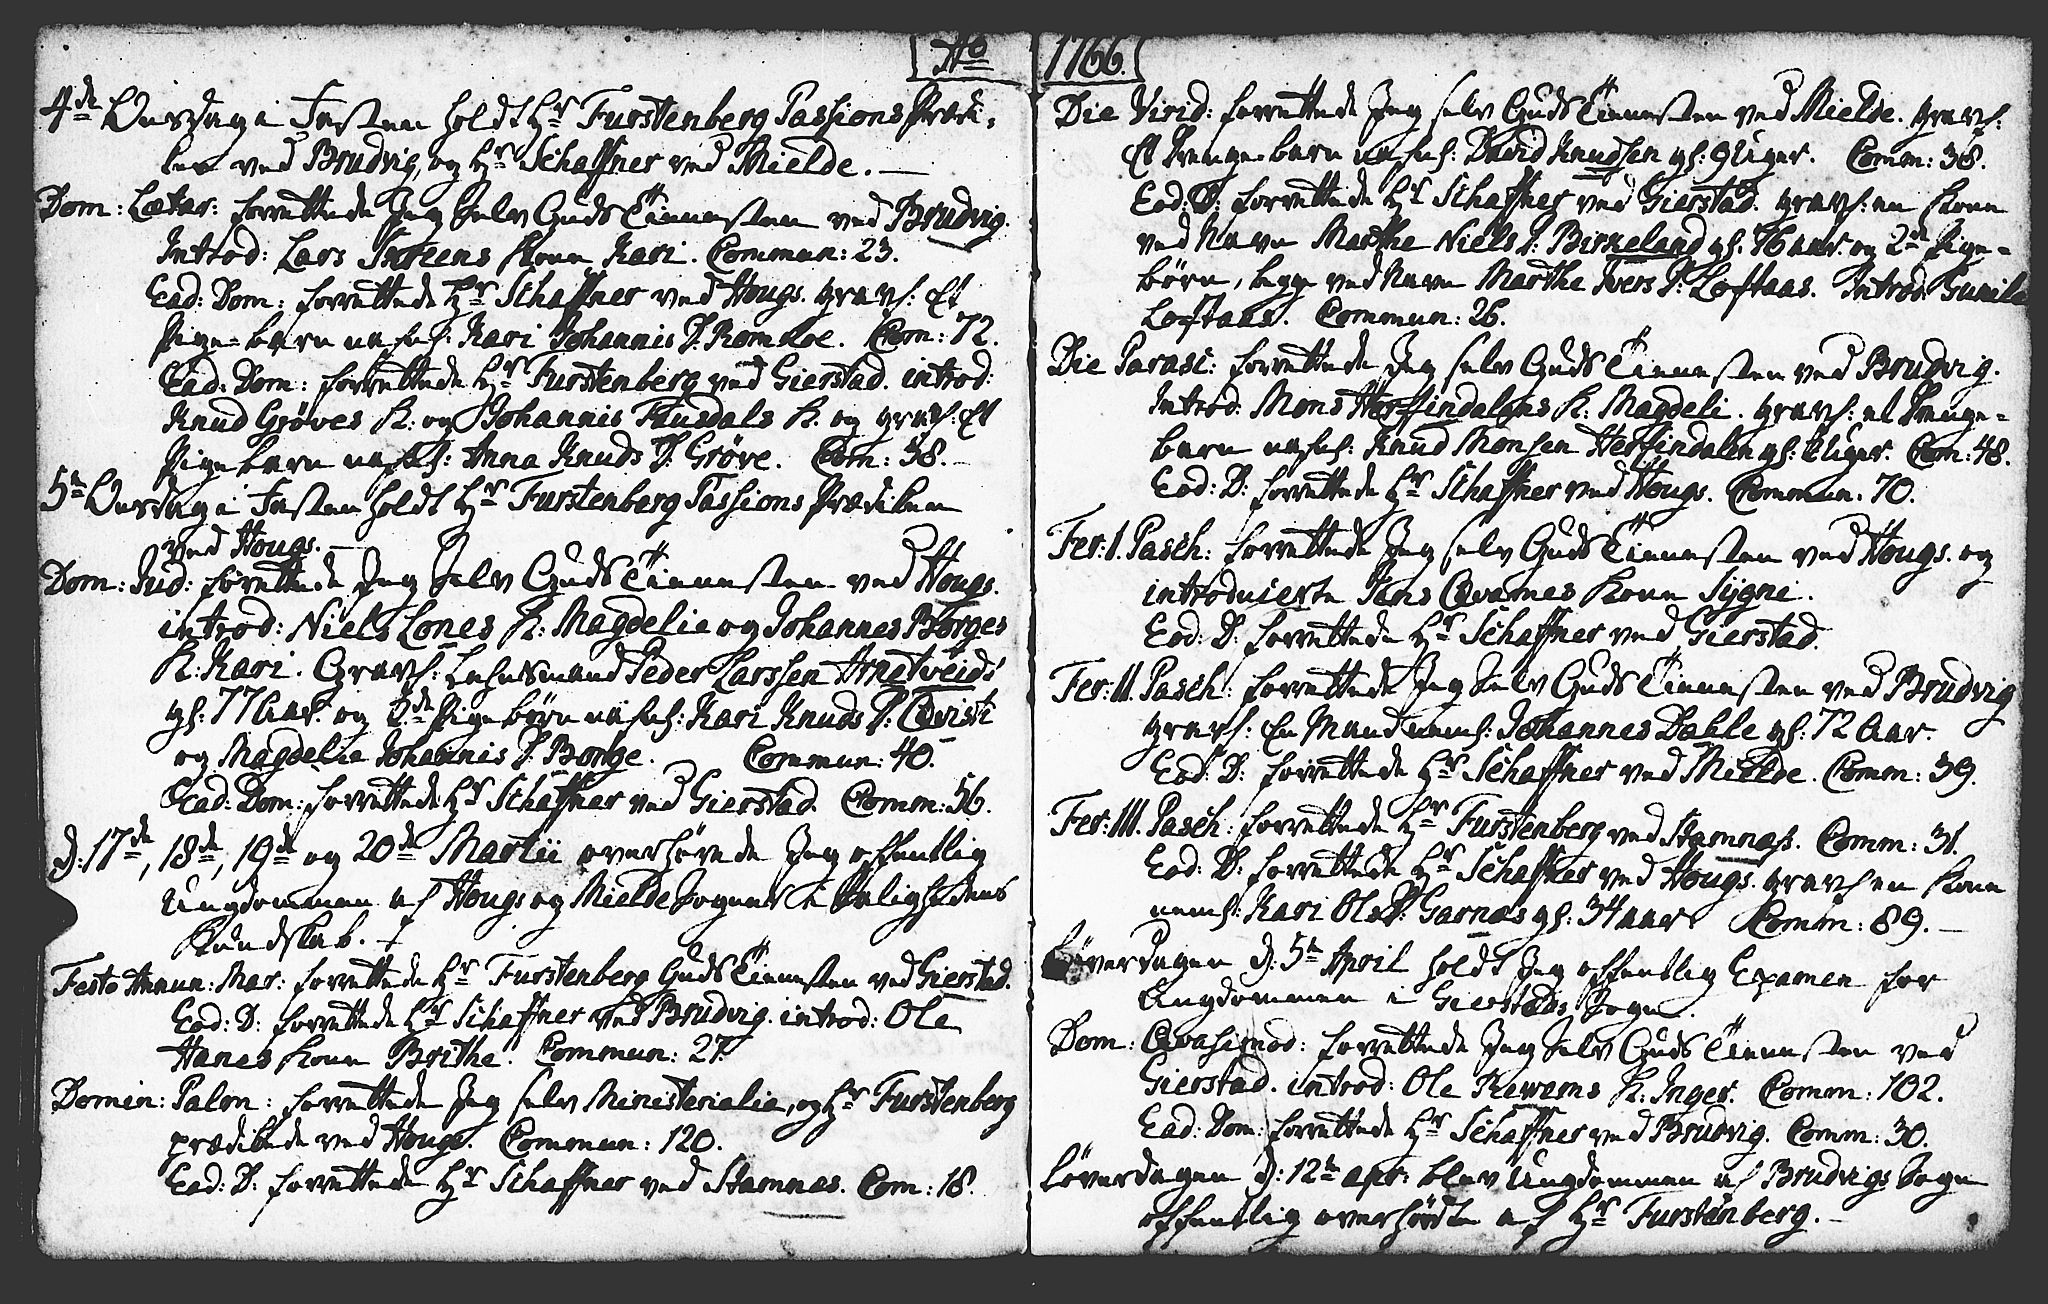 Ao 1766.
4de Onsdag i Fasten holdt Hr Furstenberg Passions Prædi-
ken ved Brudvig, og Hr Schaffner ved Mielde.
Dom: Lætar: forrettede Jeg Selv Guds Tiennesten ved Brudvig.
Introd: Lars Kone Kari. Commun: 23.
Ead: Dom: forrettede Hr Schaffner ved Hougs. gravf: Et
Pige-barn nafnl: Kari Johannis D. Romsloe. Com: 72.
Ead: Dom: forrettede Hr Furstenberg ved Gierstad. introd:
Knud Gröves K: og Johannis Flusdals K. og gravf: Et
Pigebarn nafnl: Anna Knuds D: Gröve. Com: 38.
5te Onsdag i Fasten holdt Hr Furstenberg Passions Prædiken
ved Hougs.
Dom: Jud: forrettede Jeg Selv Guds Tiennesten ved Hougs.
introd: Niels Lones K: Magdelie og Johannes Borges
K: Kari. Gravf: Lehnsmand Peder Larssen Arnetveid
gl: 77 Aar. og 2de Pigebörn nafnl: Kari Knuds D: Qvisti
og Magdelie Johannis D: Borge. Commun: 40.
Ead: Dom: forrettede Hr Schaffner ved Gierstad. Comm: 56.
d: 17de, 18de, 19de og 20de Martii overhörede Jeg offentlig
Ungdommen af Hougs og Mielde Sogner i Saligheds
Kundskab.
Festo Annun: Mar: forrettede Hr Furstenberg Guds Tiennesten ved Gierstad.
Eod: D: forrettede Hr Schaffner ved Brudvig. introd: Ole
Hanes Kone Brithe. Commun: 27.
Domin: Palm: forrettede Jeg selv Ministerialia, og Hr Furstenberg
prædikede ved Hougs. Commun: 120.
Ead: D: forrettede Hr Schaffner ved Stamnæs. Com: 18.
Die Virid: forrettede Jeg selv Guds Tiennesten ved Mielde. gravf:
Et Drenge-barn nafnl: David Knudsen gl: 9 Uger. Comm: 38.
Eod: D: forrettede Hr Schaffner ved Gierstad. gravf: en Kone
ved Navn Marthe Niels D: Birkeland gl: 76 aar. og 2de Pige-
börn, begge ved Navn Marthe Ivers D: Loftaas. Introd: Gunile
Loftaas. Commun: 26.
Die Parasc: forrettede Jeg selv Guds Tiennesten ved Brudvig.
Introd: Mons Herfindalens K: Magdeli. gravf: et Drenge-
barn nafnl: Knud Monsen Herfindalen gl: Uger. Com: 48.
Eod: D: forrettede Hr Schaffner ved Hougs. Commun: 70.
Fer: I. Pasch: forrettede Jeg selv Guds Tiennesten ved Hougs. og
introducierte Jens Qvamnes Kone Sygni.
Eod: D: forrettede Hr Schaffner ved Gierstad.
Fer: II. Pasch: forrettede Jeg Selv Guds Tiennesten ved Brudvig
gravf: En Mand neml: Johannes Dahle gl: 72 Aar.
Eod: D: forrettede Hr Schaffner ved Mielde. Comm: 39.
Fer: III. Pasch: forrettede Hr Furstenberg ved Stamnæs. Comm: 31.
Eod: D: forrettede Hr Schaffner ved Hougs. gravf en Kone
neml: Kari Ols D: Garnæs gl: 34 aar. Comm: 89.
Löverdagen d: 5te April holdt Jeg offentlig Examen for
Ungdommen i Gierstads Sogn.
Dom: Qvasimod: forrettede Jeg Selv Guds Tiennesten ved
Gierstad. introd: Ole K: Inger. Comm: 102.
Ead: Dom: forrettede Hr Schaffner ved Brudvig. Comm: 30.
Löverdagen d: 12te apr: blev Ungdommen af Brudvigs Sogn
offentlig overhördte af Hr Furstenberg.